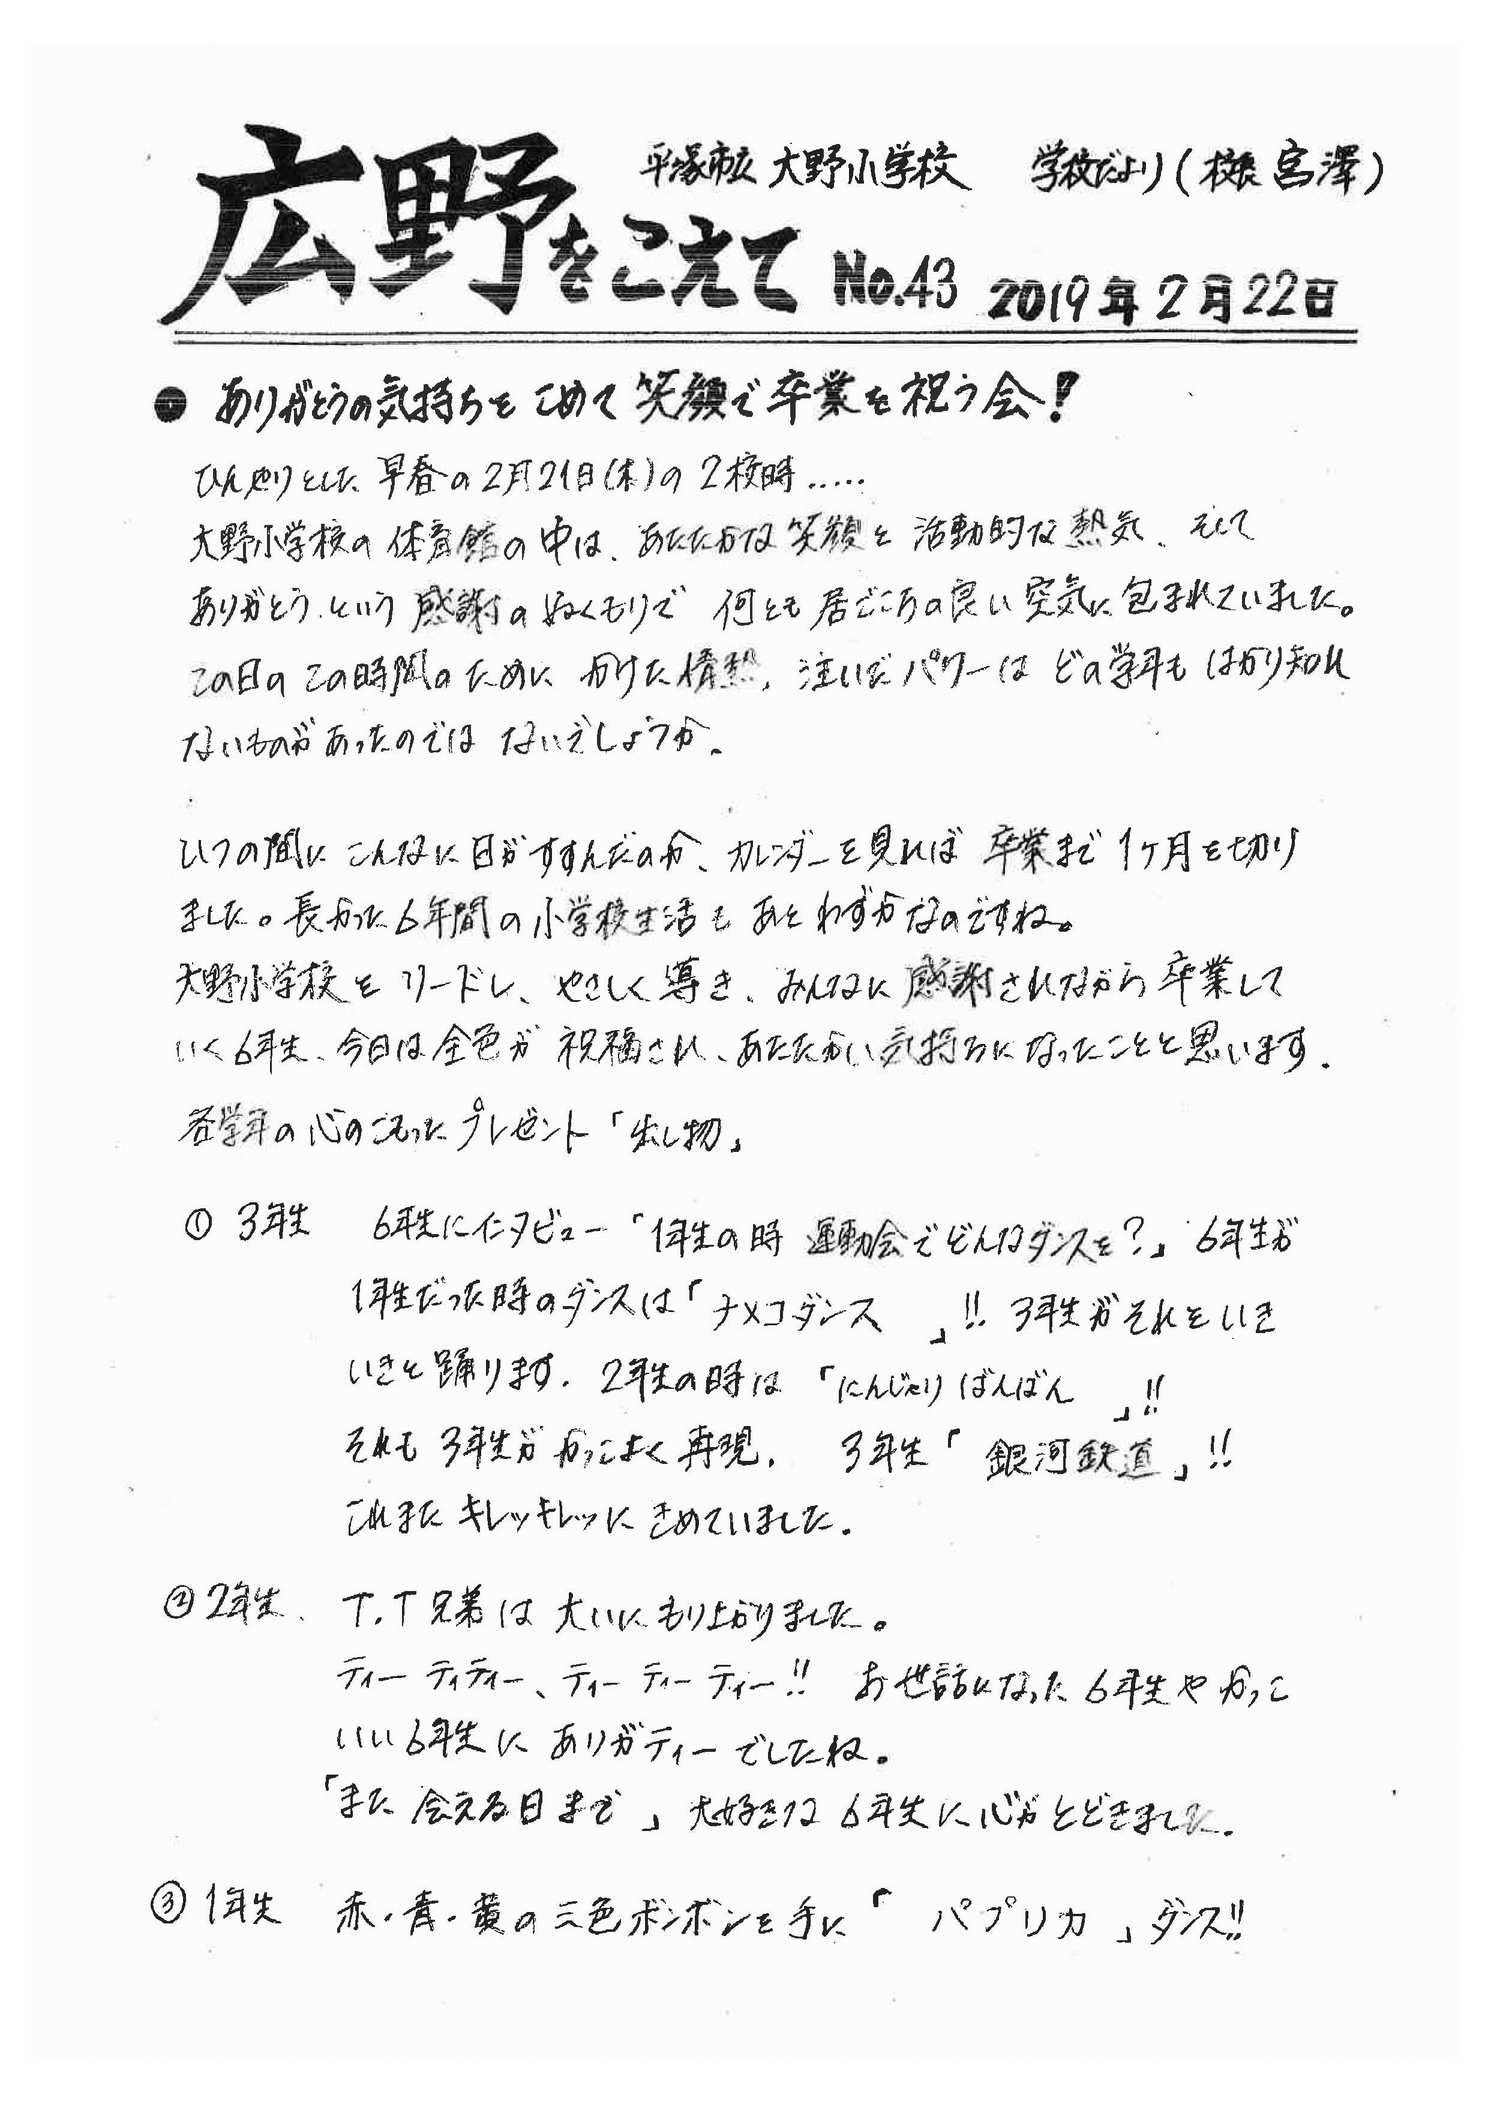 平塚市立 大野小学校 学校だより(校長 宮澤)
広野をこえて No.43 2019年2月22日
● ありがとうの気持ちを こめて 笑顔で 卒業を祝う会!
ひんやりとした 早春の2月21日(木)の 2校時……
大野小学校の 体育館の 中は、あたたかな 笑顔と 活動的な 熱気、そして
ありがとう、という 感謝の ぬくもりで 何とも 居ごこちの良い 空気に 包まれていました。
この日の この時間の ために かけた 情熱、注いだ パワーは どの学年も はかり知れ
ないものが あったのでは ないでしょうか。
いつの間に こんなに 日がすすんだのか、カレンダーを見れば 卒業まで 1ヶ月を切り
ました。長かった6年間の 小学校生活も あと わずかなのですね。
大野小学校を リードし、やさしく 導き、みんなに 感謝されながら 卒業して
いく6年生、今日は全色が 祝福され、あたたかい 気持ちになったことと思います。
各学年の 心のこもった プレゼント「出し物」
① 3年生 6年生にインタビュー「1年生の時 運動会でどんなダンスを?」6年生が
1年生だった時のダンスは「ナメコダンス 」!! 3年生がそれを いき
いきと 踊ります。2年生の時は 「にんじゃり ばんばん 」!!
それも 3年生が かっこよく 再現。 3年生「 銀河鉄道 」!!
これまた キレッキレッに きめていました。
② 2年生、 T.T兄弟は 大いに もり上がりました。
ティー ティティー、ティー ティー ティー!! お世話になった 6年生や かっこ
いい6年生に ありがティーでしたね。
「また 会える日まで 」大好きな 6年生に 心がとどきました。
③ 1年生 赤・青・黄の三色ボンボンを手に「 パプリカ 」ダンス!!